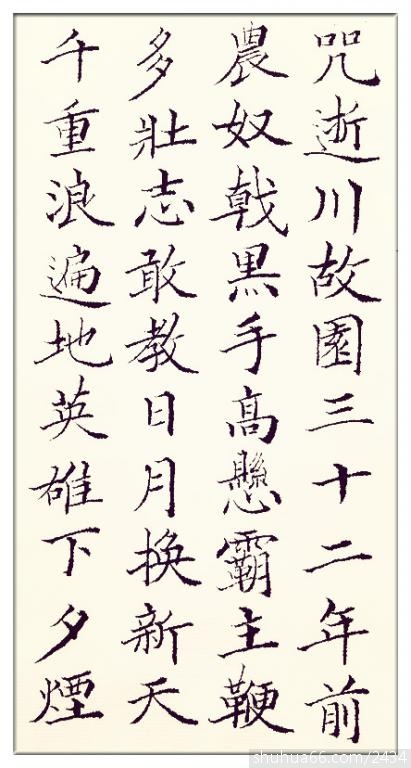 咒逝川故園三十二年前
農奴戟黑手高懸霸主鞭
多壯志敢教日月換新天
千重浪遍地英雄下夕煙
shuhua66.com/2434